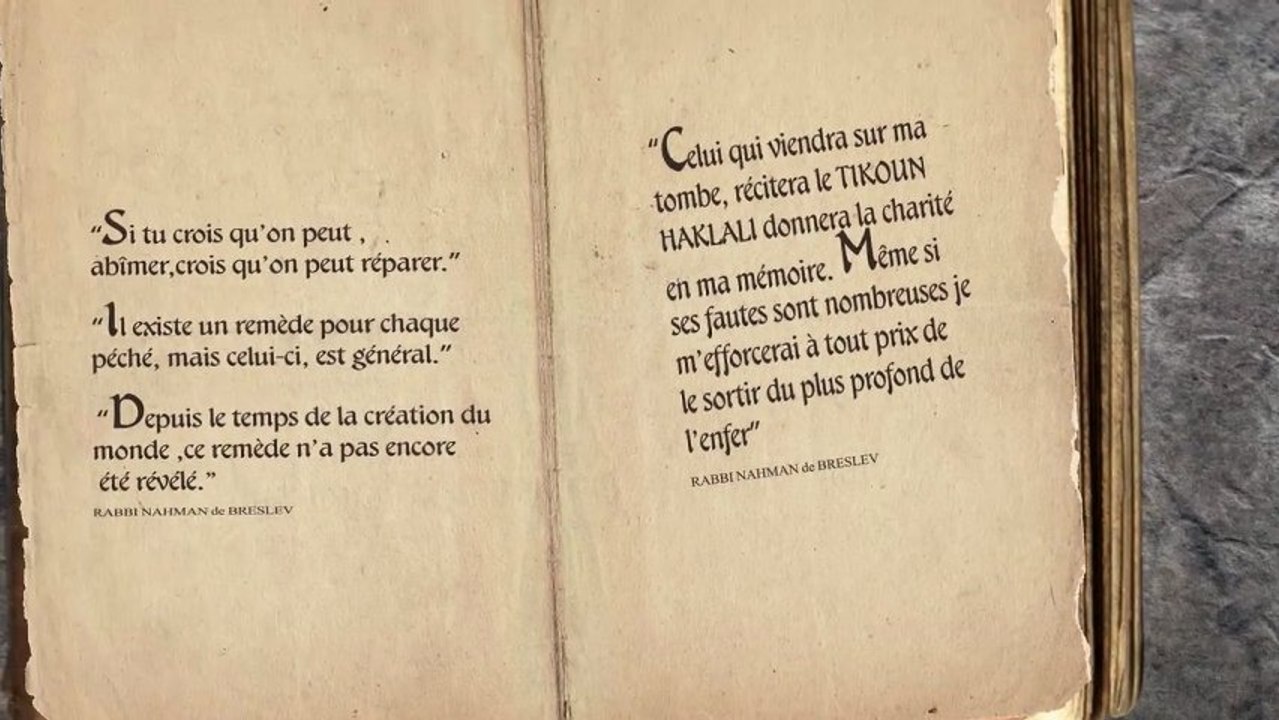 “Si tu crois qu’on peut ,
abîmer,crois qu’on peut réparer.”
“Il existe un remède pour chaque
péché, mais celui-ci, est général.”
“Depuis le temps de la création du
monde ,ce remède n’a pas encore
été révélé.”
RABBI NAHMAN de BRESLEV
“Celui qui viendra sur ma
tombe, récitera le TIKOUN
HAKLALI donnera la charité
en ma mémoire. Même si
ses fautes sont nombreuses je
m’efforcerai à tout prix de
le sortir du plus profond de
l’enfer”
RABBI NAHMAN de BRESLEV